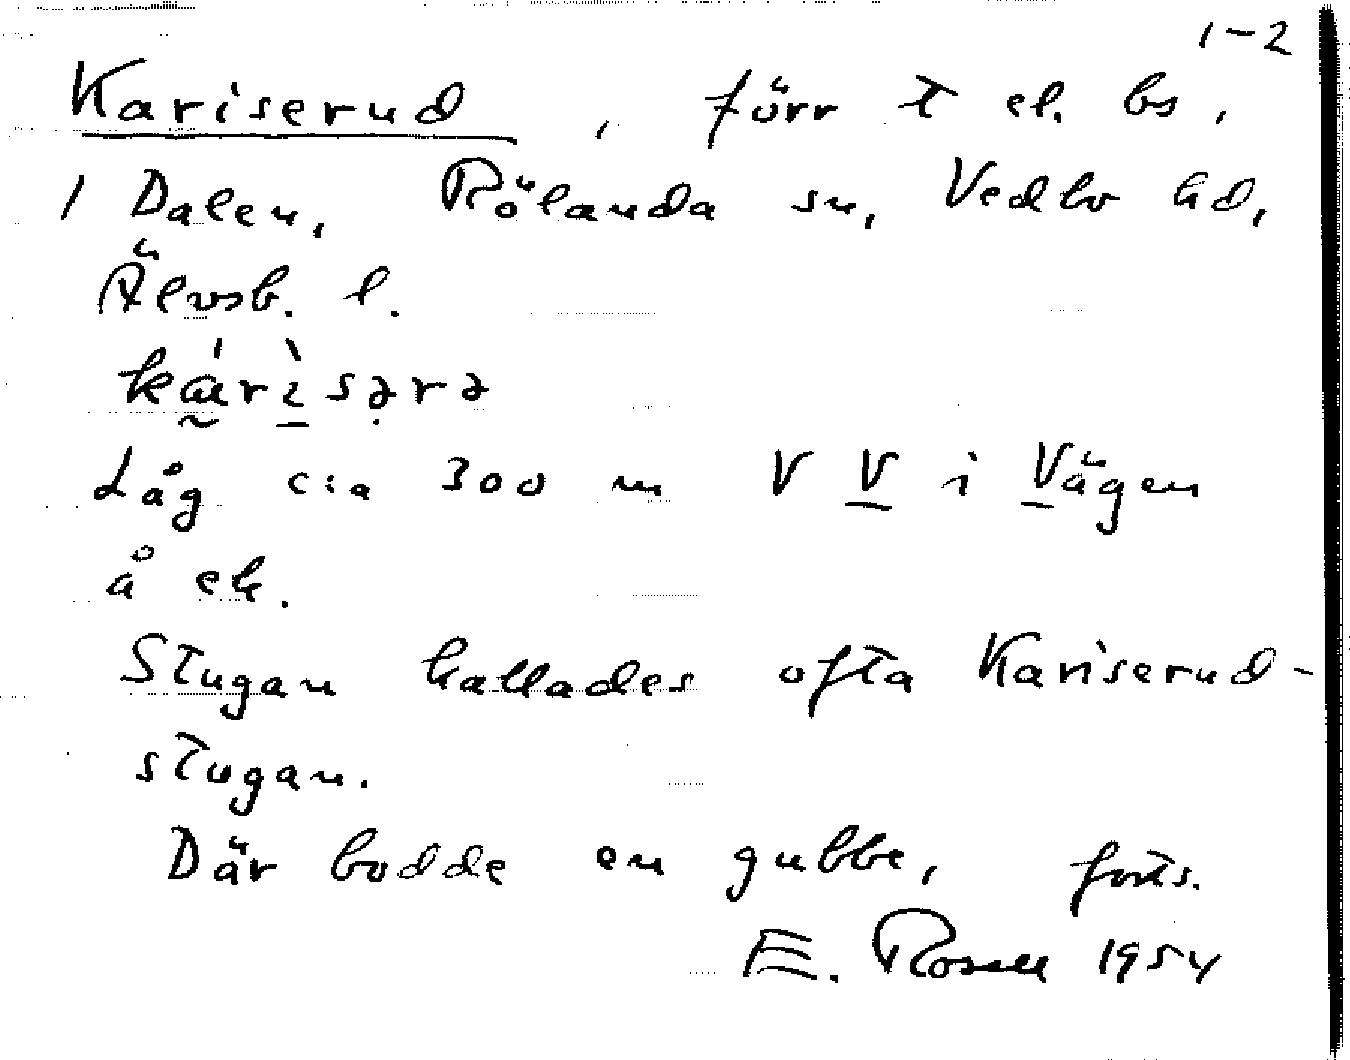 1-2
Kariserud, förr t el. bs,
i Dalen, Rölanda sn, Vedbo hd,
Älvsb. l.
Låg c:a 300 m V V i Vägen
å ek.
Stugan kallades ofta Kariserud-
stugan.
Där bodde en gubbe, forts.
E. Rosell 1954